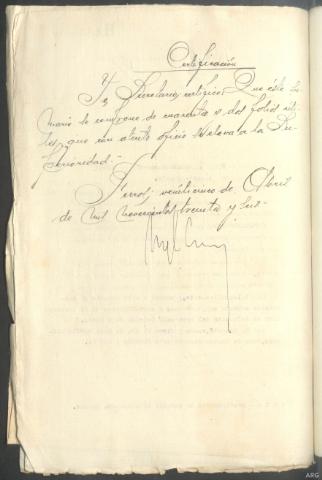 Certificación
Yo, Secretario, certifico: Que éste su
mario se compone de cuarenta y dos folios úti
les, que con atento oficio se eleva a la Su-
perioridad.-
Ferrol, veintiuno de Abril
de mil novecientos treinta y
ARG